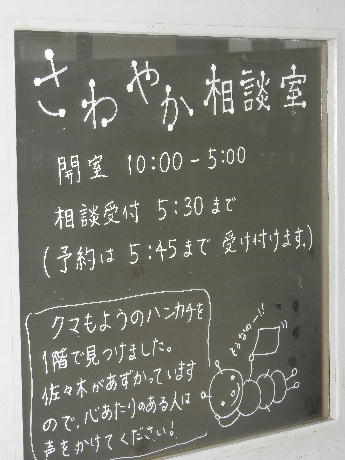 さわやか相談室
開室 10:00-5:00
相談受付 5:30まで
(予約は 5:45まで 受け付けます。)
クマもようのハンカチを
1階で見つけました。
佐々木があずかっています
ので、心あたりのある人は
声をかけてください!